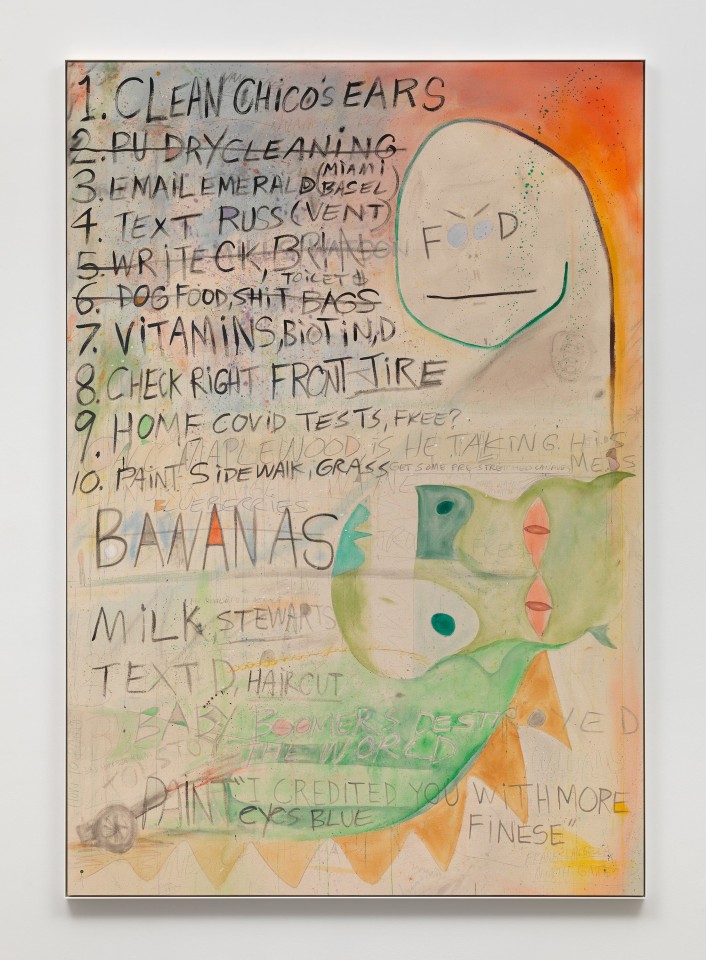 1. CLEAN CHiCO'S EARS
2. PU DRYCLEANiNG
3. EMAIL EMERALD (MiAMi BASEL)
4. TEXT RUSS (VENT)
5. WRiTE CK, BRiAN
6. DOG FOOD, SHiT BAGS TOiLET
7. ViTAMiNS, BiOTiN, D
8. CHECK RIGHT FRONT TIRE
9. HOME COVID TESTS, FREE?
MAPLEWOOD iS HE TAKiNG HiS
MEDS
10. PAiNT SiDEWALK, GRASS
FOOD
BANANAS
MiLK, STEWARTS
TEXT D, HAiRCUT
BABY BOOMERS DESTROYED
THE WORLD
PAiNT "I CREDITED YOU WiTH MORE
eyes BLUE FiNESE"